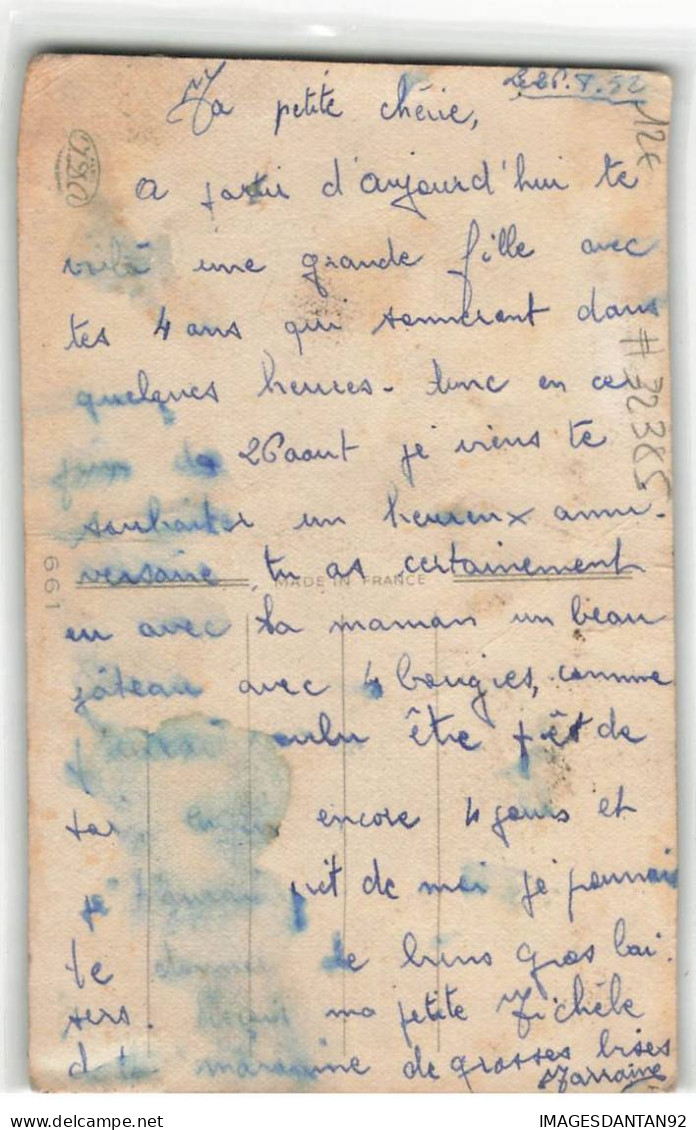 Le 26.8.52
Ma petite chérie,
12€
a partir d'aujourd'hui te
voilà une grande fille avec
tes 4 ans qui sonneront dans
quelques heures - donc en ce
# 32365
jour de 26 aout je viens te
souhaiter un heureux anni-
versaire, tu as certainement
MADE IN FRANCE
661
eu avec ta maman un beau
gâteau avec 4 bougies, comme
j'aurai voulu être près de
toi, encore 4 jours et
je t'aurai près de moi je pourrai
te donner de biens gros bai-
sers. Reçois ma petite Michèle
de ta marraine de grosses bises
Marraine
IMAGESDANTAN92